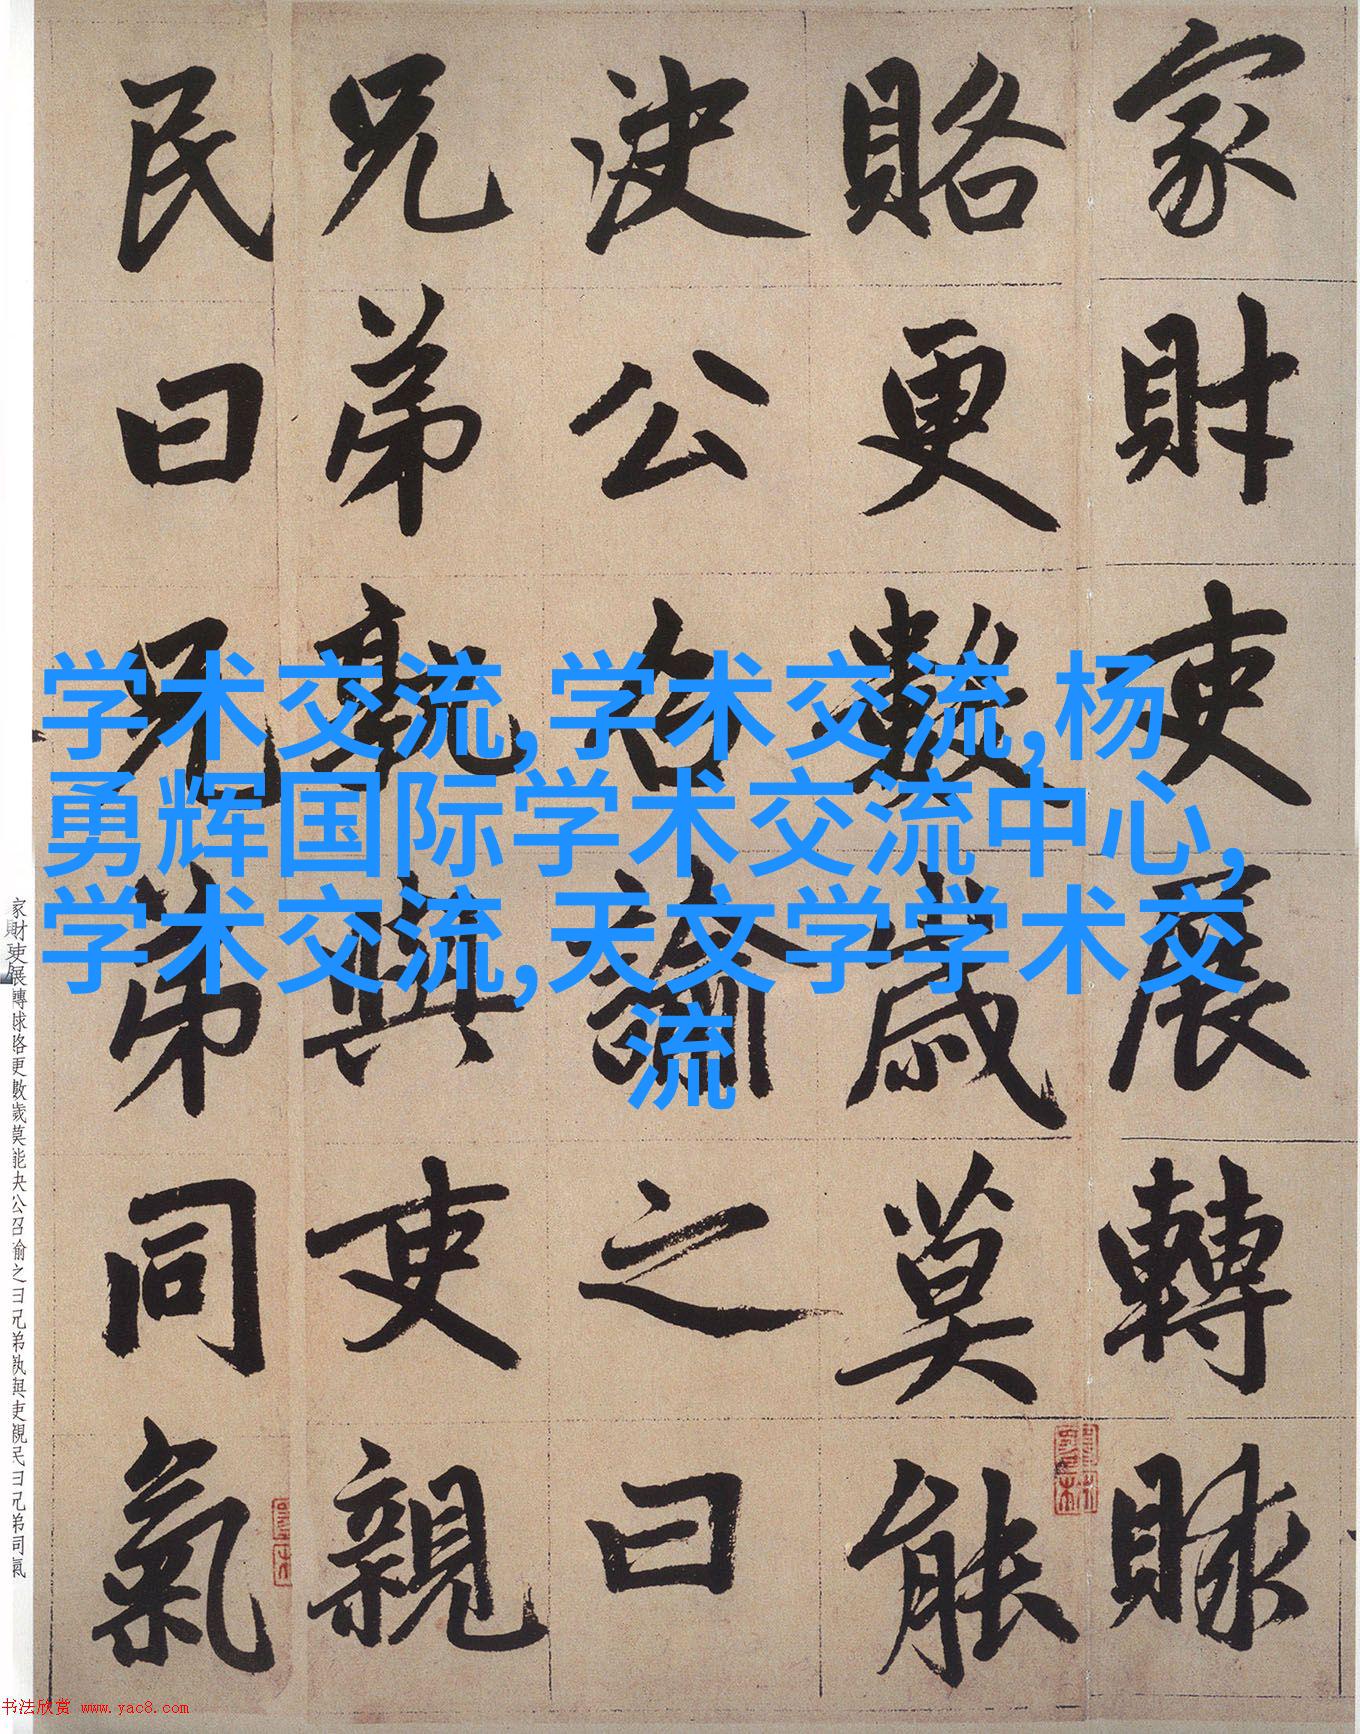 家財吏展轉賕
賂更數歲莫能
決公召諭之曰
兄弟孰與吏親
民曰兄弟同氣
学术交流,学术交流,杨
勇辉国际学术交流中心,
学术交流,天文学学术交
流
家財吏展轉賕賂更數歲莫能決公召諭之曰兄弟孰與吏親民曰兄弟同氣
书法欣赏 www.yac8.com